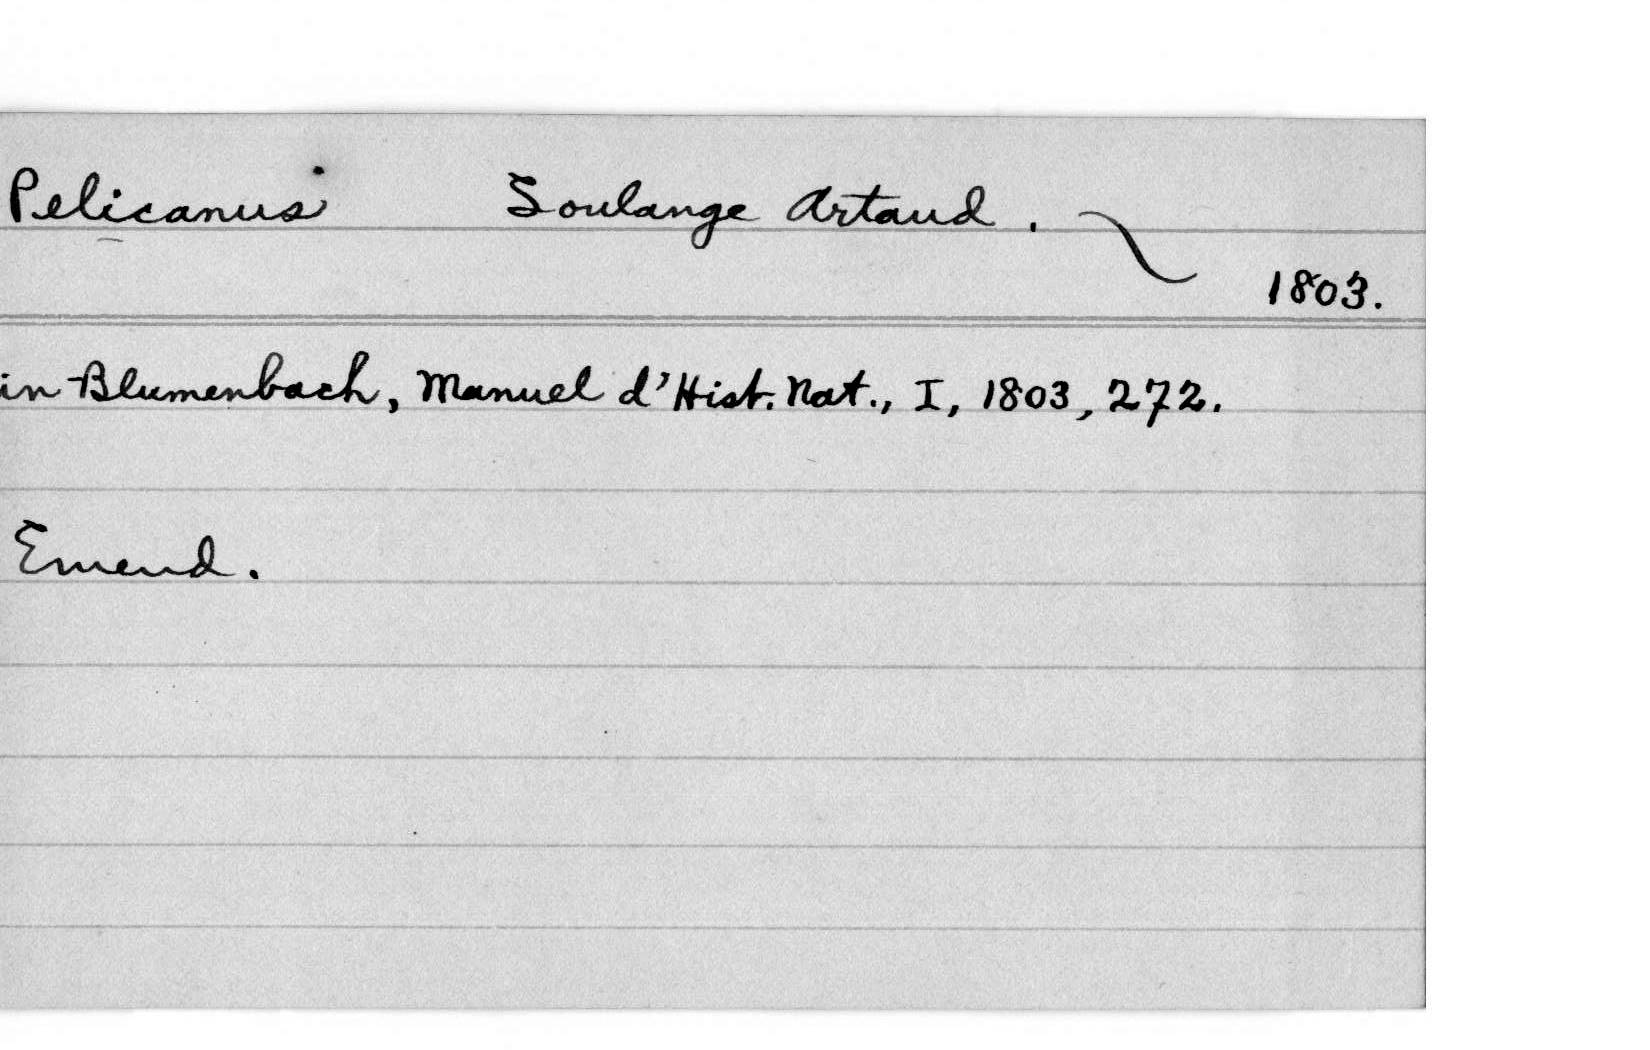 Pelicanus Soulange Artaud.
1803.
in Blumenbach, Manuel d'Hist. Nat., I, 1803, 272.
Emend.